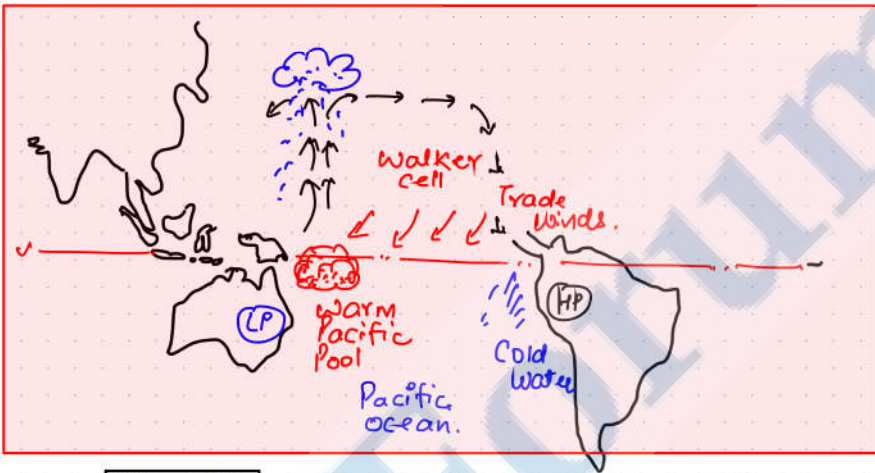 Walker
cell
Trade
Winds.
LP
HP
Warm
Pacific
Pool
Cold
Water
Pacific
ocean.
Forum